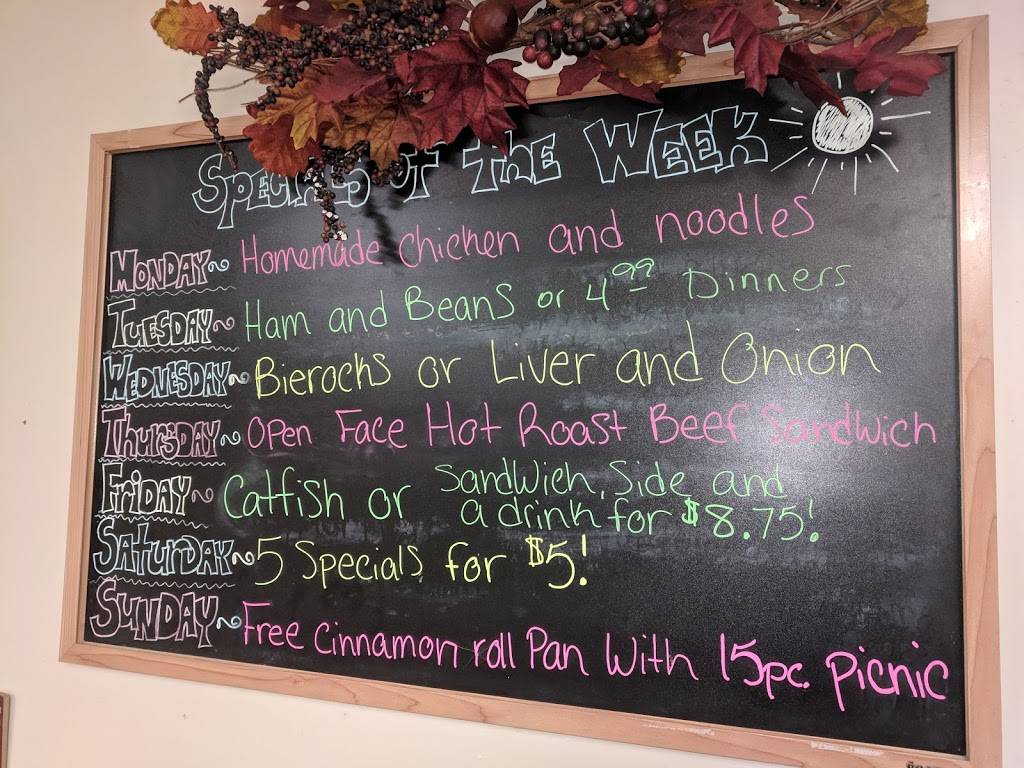 Specials of the Week
Monday~ Homemade Chicken and noodles
Tuesday~ Ham and Beans or 4.99 Dinners
Wednesday~ Bierocks or Liver and Onion
Thursday~ Open Face Hot Roast Beef Sandwich
Friday~ Catfish or Sandwich, Side and
a drink for $8.75!
Saturday~ 5 Specials for $5!
Sunday~ Free Cinnamon roll Pan With 15pc. Picnic